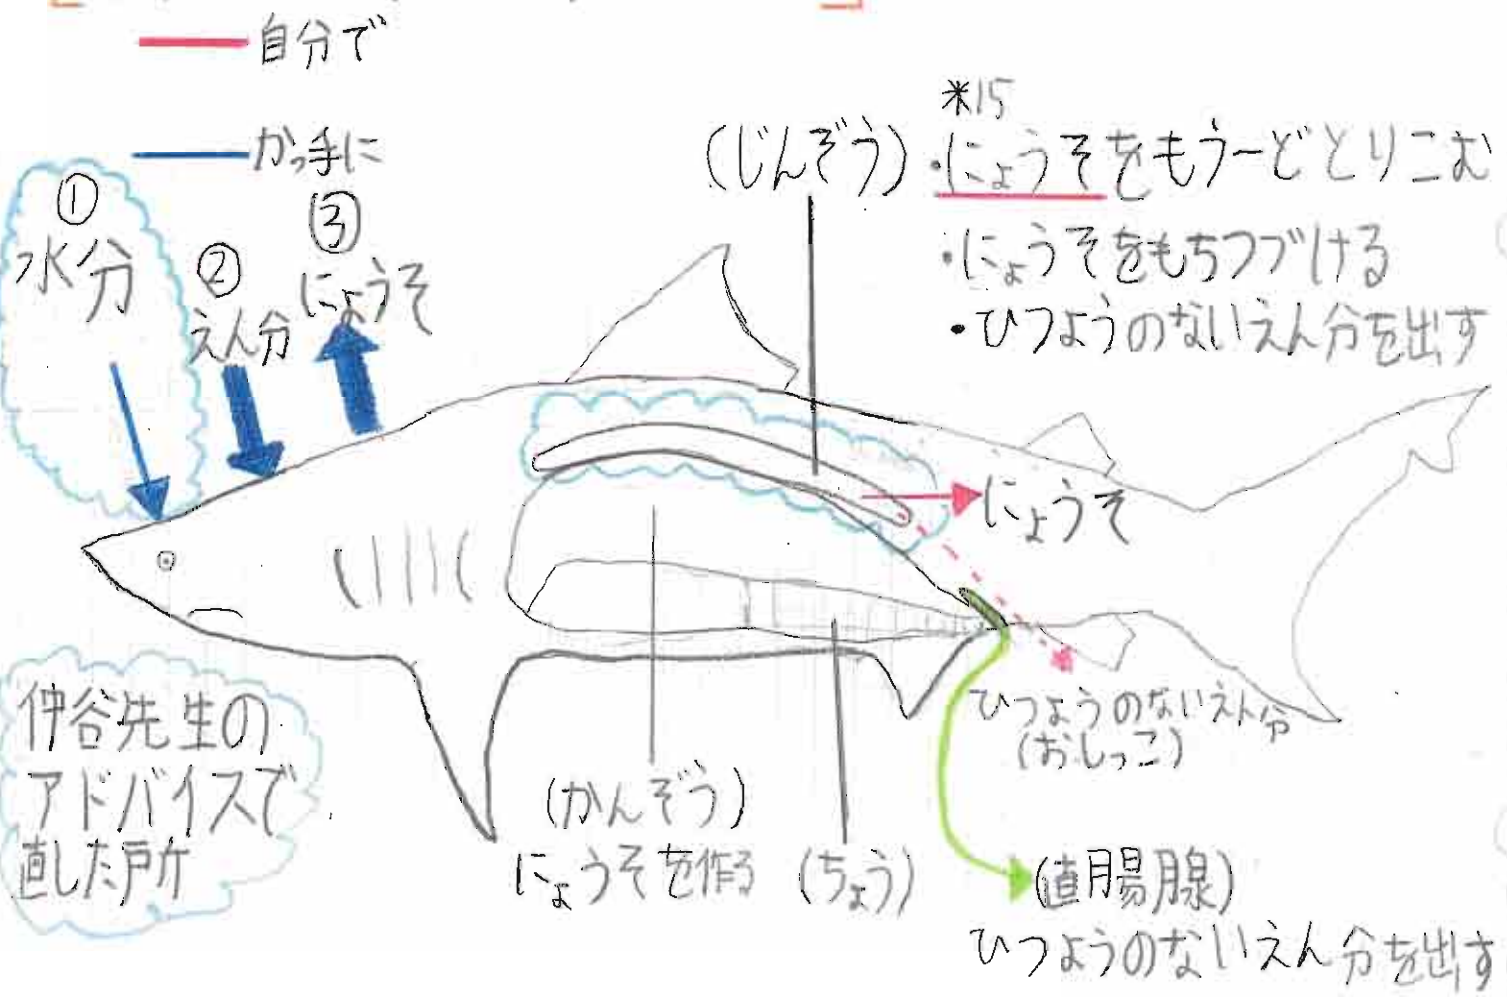 自分で
かっ手に
①
水分
②
えん分
③
にょうそ
(じんぞう)
※15
・にょうそをもう一どとりこむ
・にょうそをもちつづける
・ひつようのないえん分を出す
にょうそ
ひつようのないえん分
(おしっこ)
仲谷先生の
アドバイスで
直した所
(かんぞう)
にょうそを作る
(ちょう)
(直腸腺)
ひつようのないえん分を出す